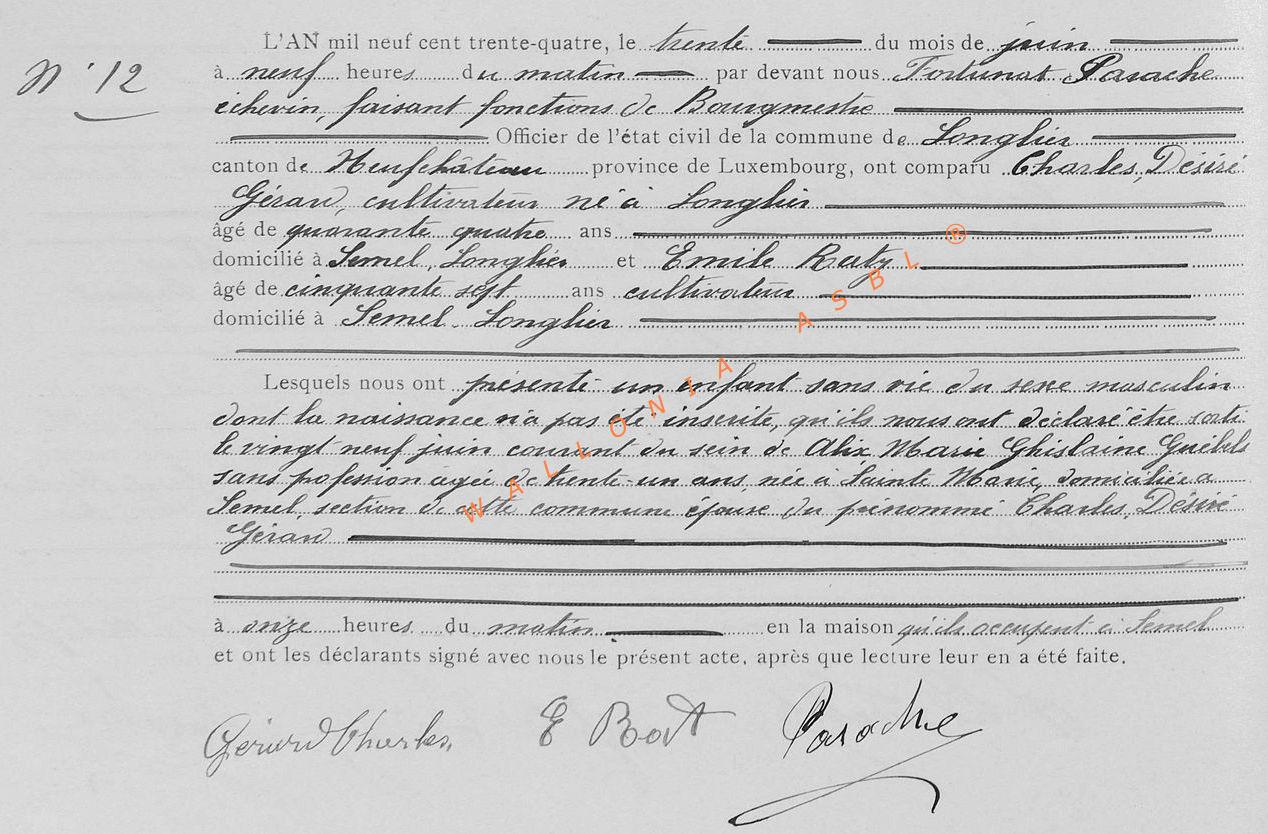 L'AN mil neuf cent trente-quatre, le trente du mois de juin
N° 12
à neuf heures du matin par devant nous Fortunat Parache
échevin, faisant fonctions de Bourgmestre
Officier de l'état civil de la commune de Longlier
canton de Neufchâteau province de Luxembourg, ont comparu Charles, Désiré
Gérard, cultivateur né à Longlier
âgé de quarante quatre ans
domicilié à Semel, Longlier et Emile
âgé de cinquante sept ans cultivateur
domicilié à Semel. Longlier
Lesquels nous ont présenté un enfant sans vie du sexe masculin
dont la naissance n'a pas été inscrite, qu'ils nous ont déclaré être sorti
le vingt neuf juin courant du sein de Alix Marie Ghislaine Guébels
sans profession agée de trente-un ans, née à Sainte Marie, domiciliée à
Semel, section de cette commune épouse du prénommé Charles, Désiré
Gérard
à onze heures du matin en la maison qu'ils occupent à Semel
et ont les déclarants signé avec nous le présent acte, après que lecture leur en a été faite.
Gérard Charles. E Parache
WALLONIA ASBL ®